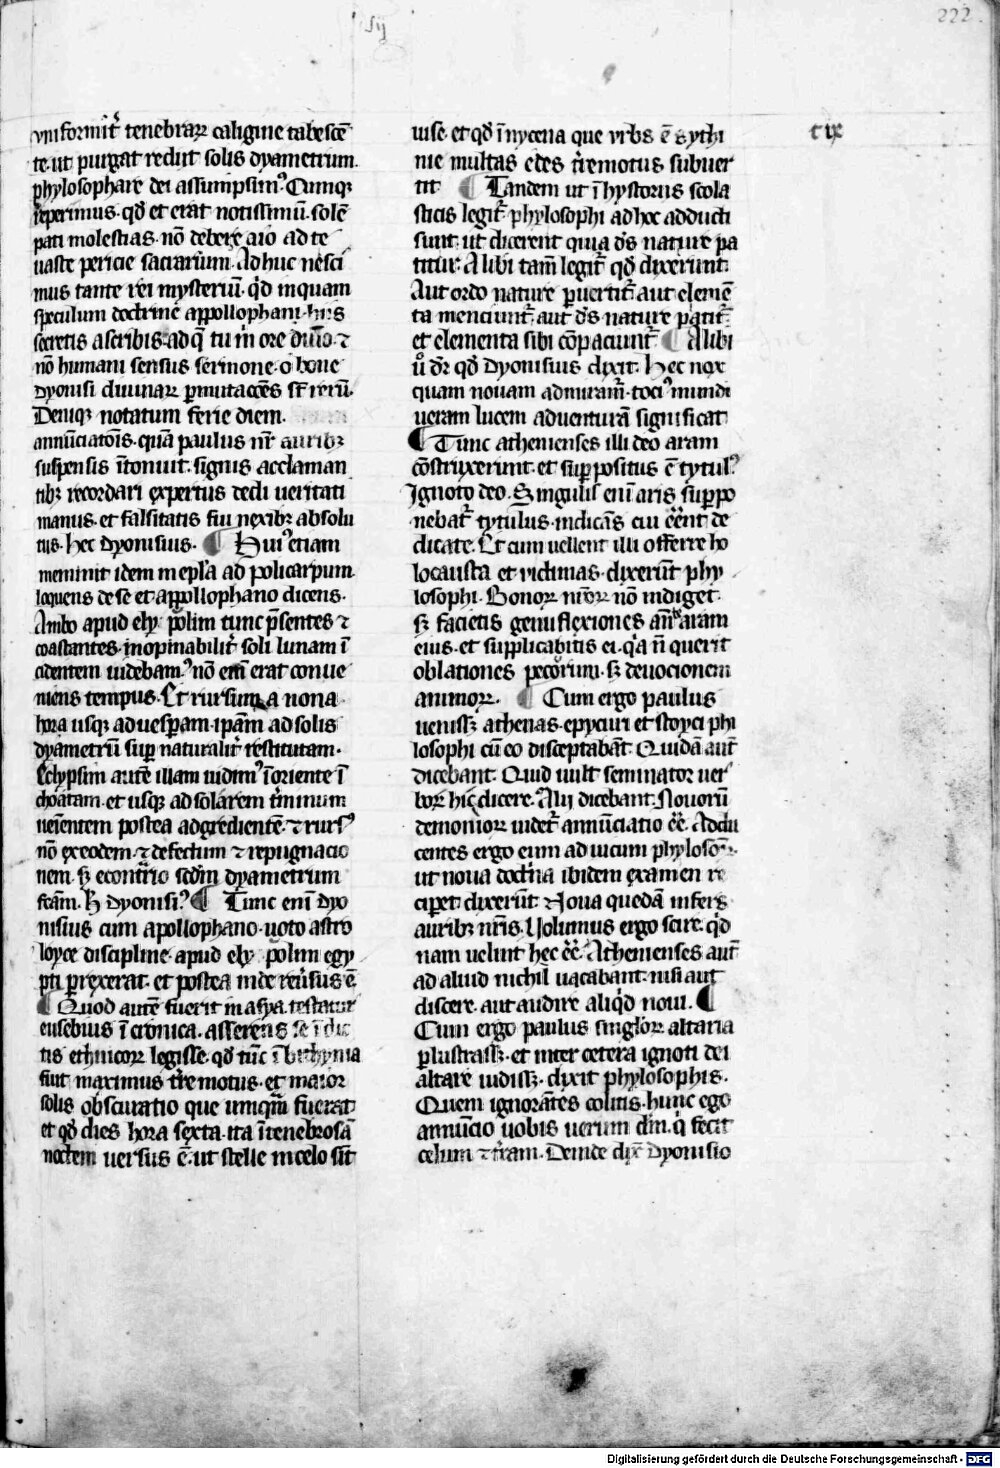 222
vniformit᷒ tenebraꝝ caligine tabescē
te. ut purgat᷒ rediit solis dyametrum.
phylosophare dei assumpsim᷒. Cumqꝫ
reperimus. qđ et erat notissimū. solē
pati molestias. nō debere, aio ad te
uaste pericie sacrarium. Adhuc nesci
mus tante rei mysteriū. qͥd inquam
speculum doctrine appollophani. hiis
secretis ascribis. ad q̄ tu in ore diuīo ⁊
nō humani sensus sermone. o bone
dyonisi diuinaꝝ permutacōes sūt rerū.
Deniqꝫ notatum ferie diem.
annūciatōis. quā paulus nr̄ auribꝫ
suspensis ītonuit. signis acclaman
tibꝫ recordari expertus dedi ueritati
manus. et falsitatis fui nexibꝫ absolu
tus. hec dyonisius. ¶ Hui᷒ etiam
meminit idem in epl̄a ad policarpum
loquens de se et appollophano dicens.
Ambo apud elyopolim tunc p̄sentes ⁊
coastantes. inopinabilit᷒ soli lunam ī
cidentem uidebam᷒. nō eni᷒ erat conue
niens tempus. Et rursum a nona
hora usqꝫ ad uesꝑam. ip̄am ad solis
dyametrū supernaturalit᷒ restitutam.
Eclypsim autē illam uidim᷒ ī oriente ī
choatam. et usqꝫ ad solarem t᷒minum
ueientem postea adgredientē. ⁊ rurs᷒
nō ex eodem. ⁊ defectum ⁊ repugnacio
nem. sꝫ econtrͣrio scdm̄ dyametrum
fcām. H̄ dyonisi᷒. ¶ Tunc enī dyo
nisius cum apollophano. uoto astro
loyce discipline. apud elyopolim egy
pti perrexerat. et postea inde reuersus ē.
¶ Quod autē fuerit in asya testatur
eusebius ī cronica. asserens se ī dic
tis ethnicoꝝ legisse. qđ tūc ī bithynia
fuit maximus t᷒remotus. et maior
solis obscuratio que umqͣm fuerat
et qđ dies hora sexta. ita ī tenebrosā
noctem uersus ē. ut stelle in celo sīt
uise. et qđ ī nycena que urbs ē bythi
nie multas edes t᷒remotus subuer
tit ¶ Tandem ut ī hystoriis scola
sticis legit᷒. phylosophi ad hoc adducti
sunt. ut dicerent quia ds̄ nature pa
titur. Alibi tam̄ legit᷒ qđ dixerunt.
Aut ordo nature peruertit᷒. aut elemē
ta menciunt᷒. aut ds̄ nature patit᷒.
et elementa sibi cōpaciunt᷒. ¶ Alibi
ů dr̄ qđ dyonisius dixit. Hec nox
quam nouam admiram᷒. toci᷒ mundi
ueram lucem aduenturā significat
¶ Tunc athenienses illi deo aram
cōstruxerunt. et superpositus ē tytul᷒.
Ignoto deo. Singulis enī aris superpo
nebat᷒ tytulus. indicās cui eēnt de
dicate. Et cum uellent illi offerre ho
locausta et uictimas. dixerūt phy
losophi. Bonoꝝ nr̄oꝝ nō indiget.
sꝫ facietis genuflexiones an̄ aram
eius. et supplicabitis ei. qͥa n̄ querit
oblationes pecorum. sꝫ deuocionem
animoꝝ. ¶ Cum ergo paulus
uenissꝫ athenas. epycuri et stoyci phi
losophi cū eo disceptabāt. Quidā aut᷒
dicebant. Quid uult seminator uer
boꝝ hic dicere. Alij dicebant. Nouorū
demonioꝝ uidet᷒ annūciatio eē. Addu
centes ergo eum ad uicum phylosoph.
ut noua doctrīa ibidem examen re
ciperet. dixerūt. Noua quedā infers
auribꝫ nr̄is. Uolumus ergo scire. qͥd
nam uelint hec eē. Athenienses aut᷒
ad aliud nichil uacabant. nisi aut
discere. aut audire aliqͥd noui. ¶
Cum ergo paulus singloꝝ altaria
perlustrassꝫ. et inter cetera ignoti dei
altare uidissꝫ. dixit phylosophis.
Quem ignorātes colitis. hunc ego
annūcio uobis uerum dm̄. qͥ fecit
celum ⁊ t᷒ram. Deinde dix᷒ dyonisio
c ix
Digitalisierung gefördert durch die Deutsche Forschungsgemeinschaft - DFG